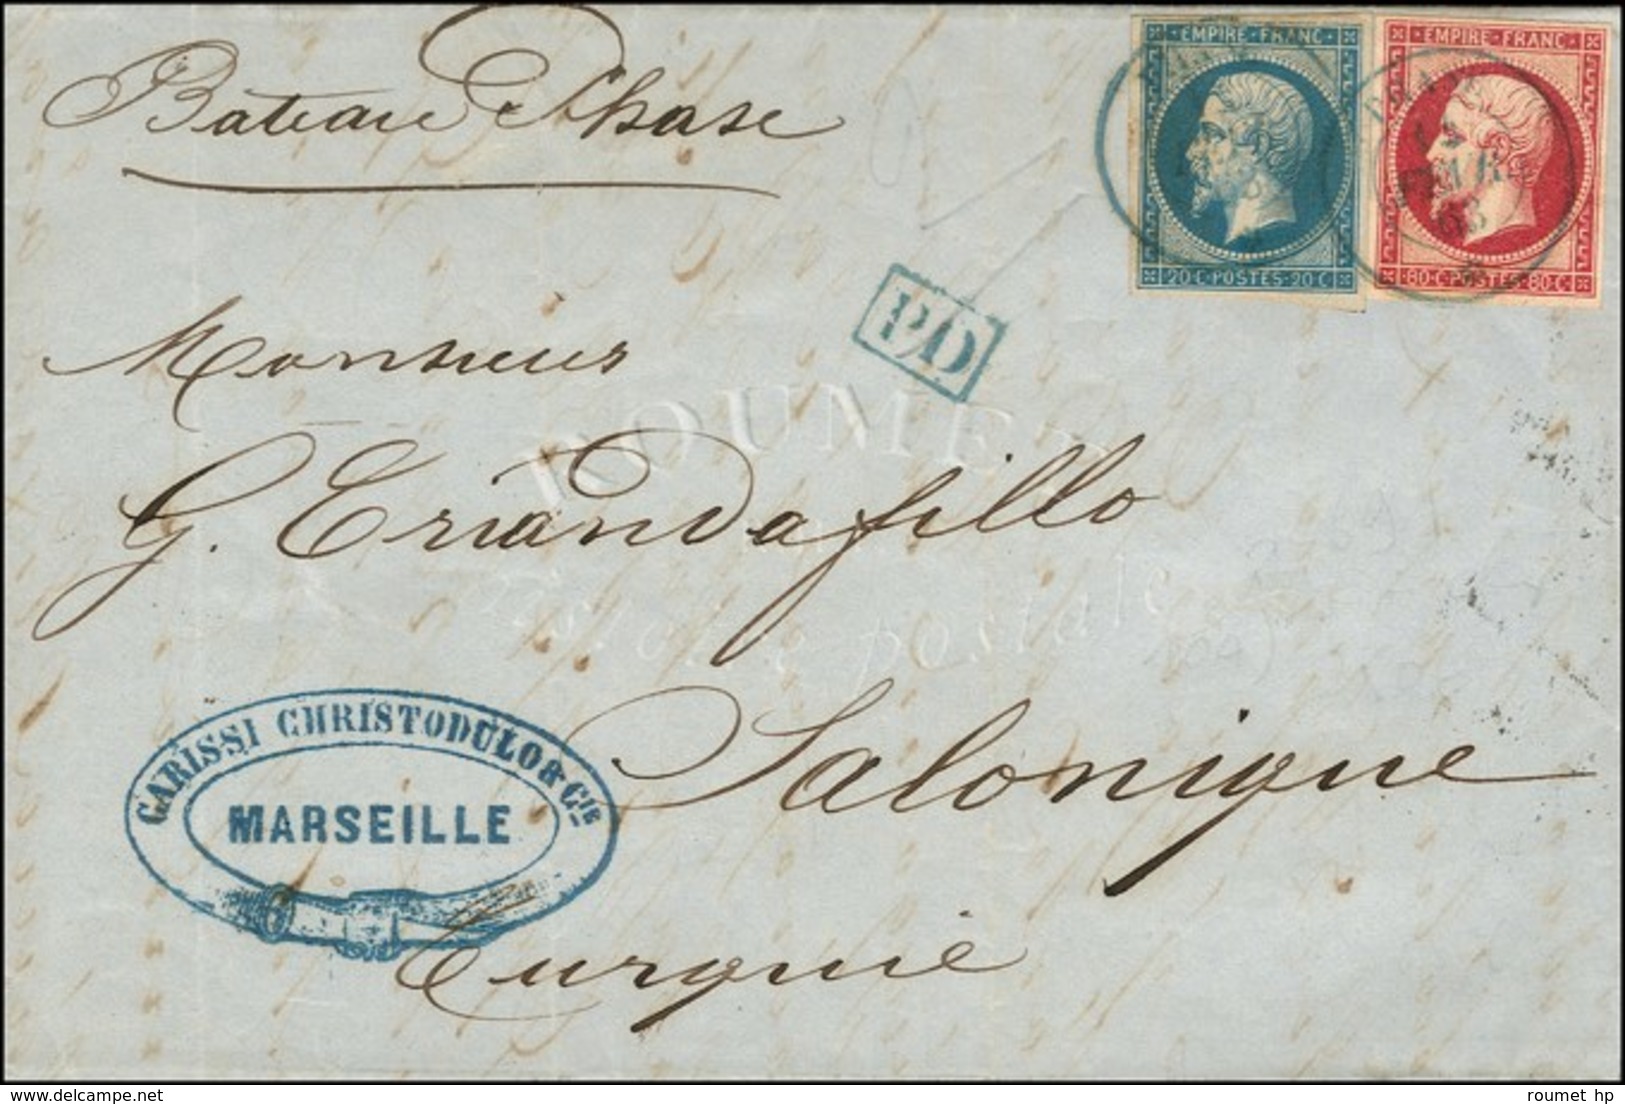 Bateau Phase
EMPIRE FRANC
20 C POSTES 20 C
EMPIRE FRANC
12
FEVR
63
80 C POSTES 80 C
PD
Monsieur
ROUMET
G. Triandafillo
Histoire postale
Salonique
CARISSI CHRISTODULO & Cie
MARSEILLE
Turquie
roumet hp